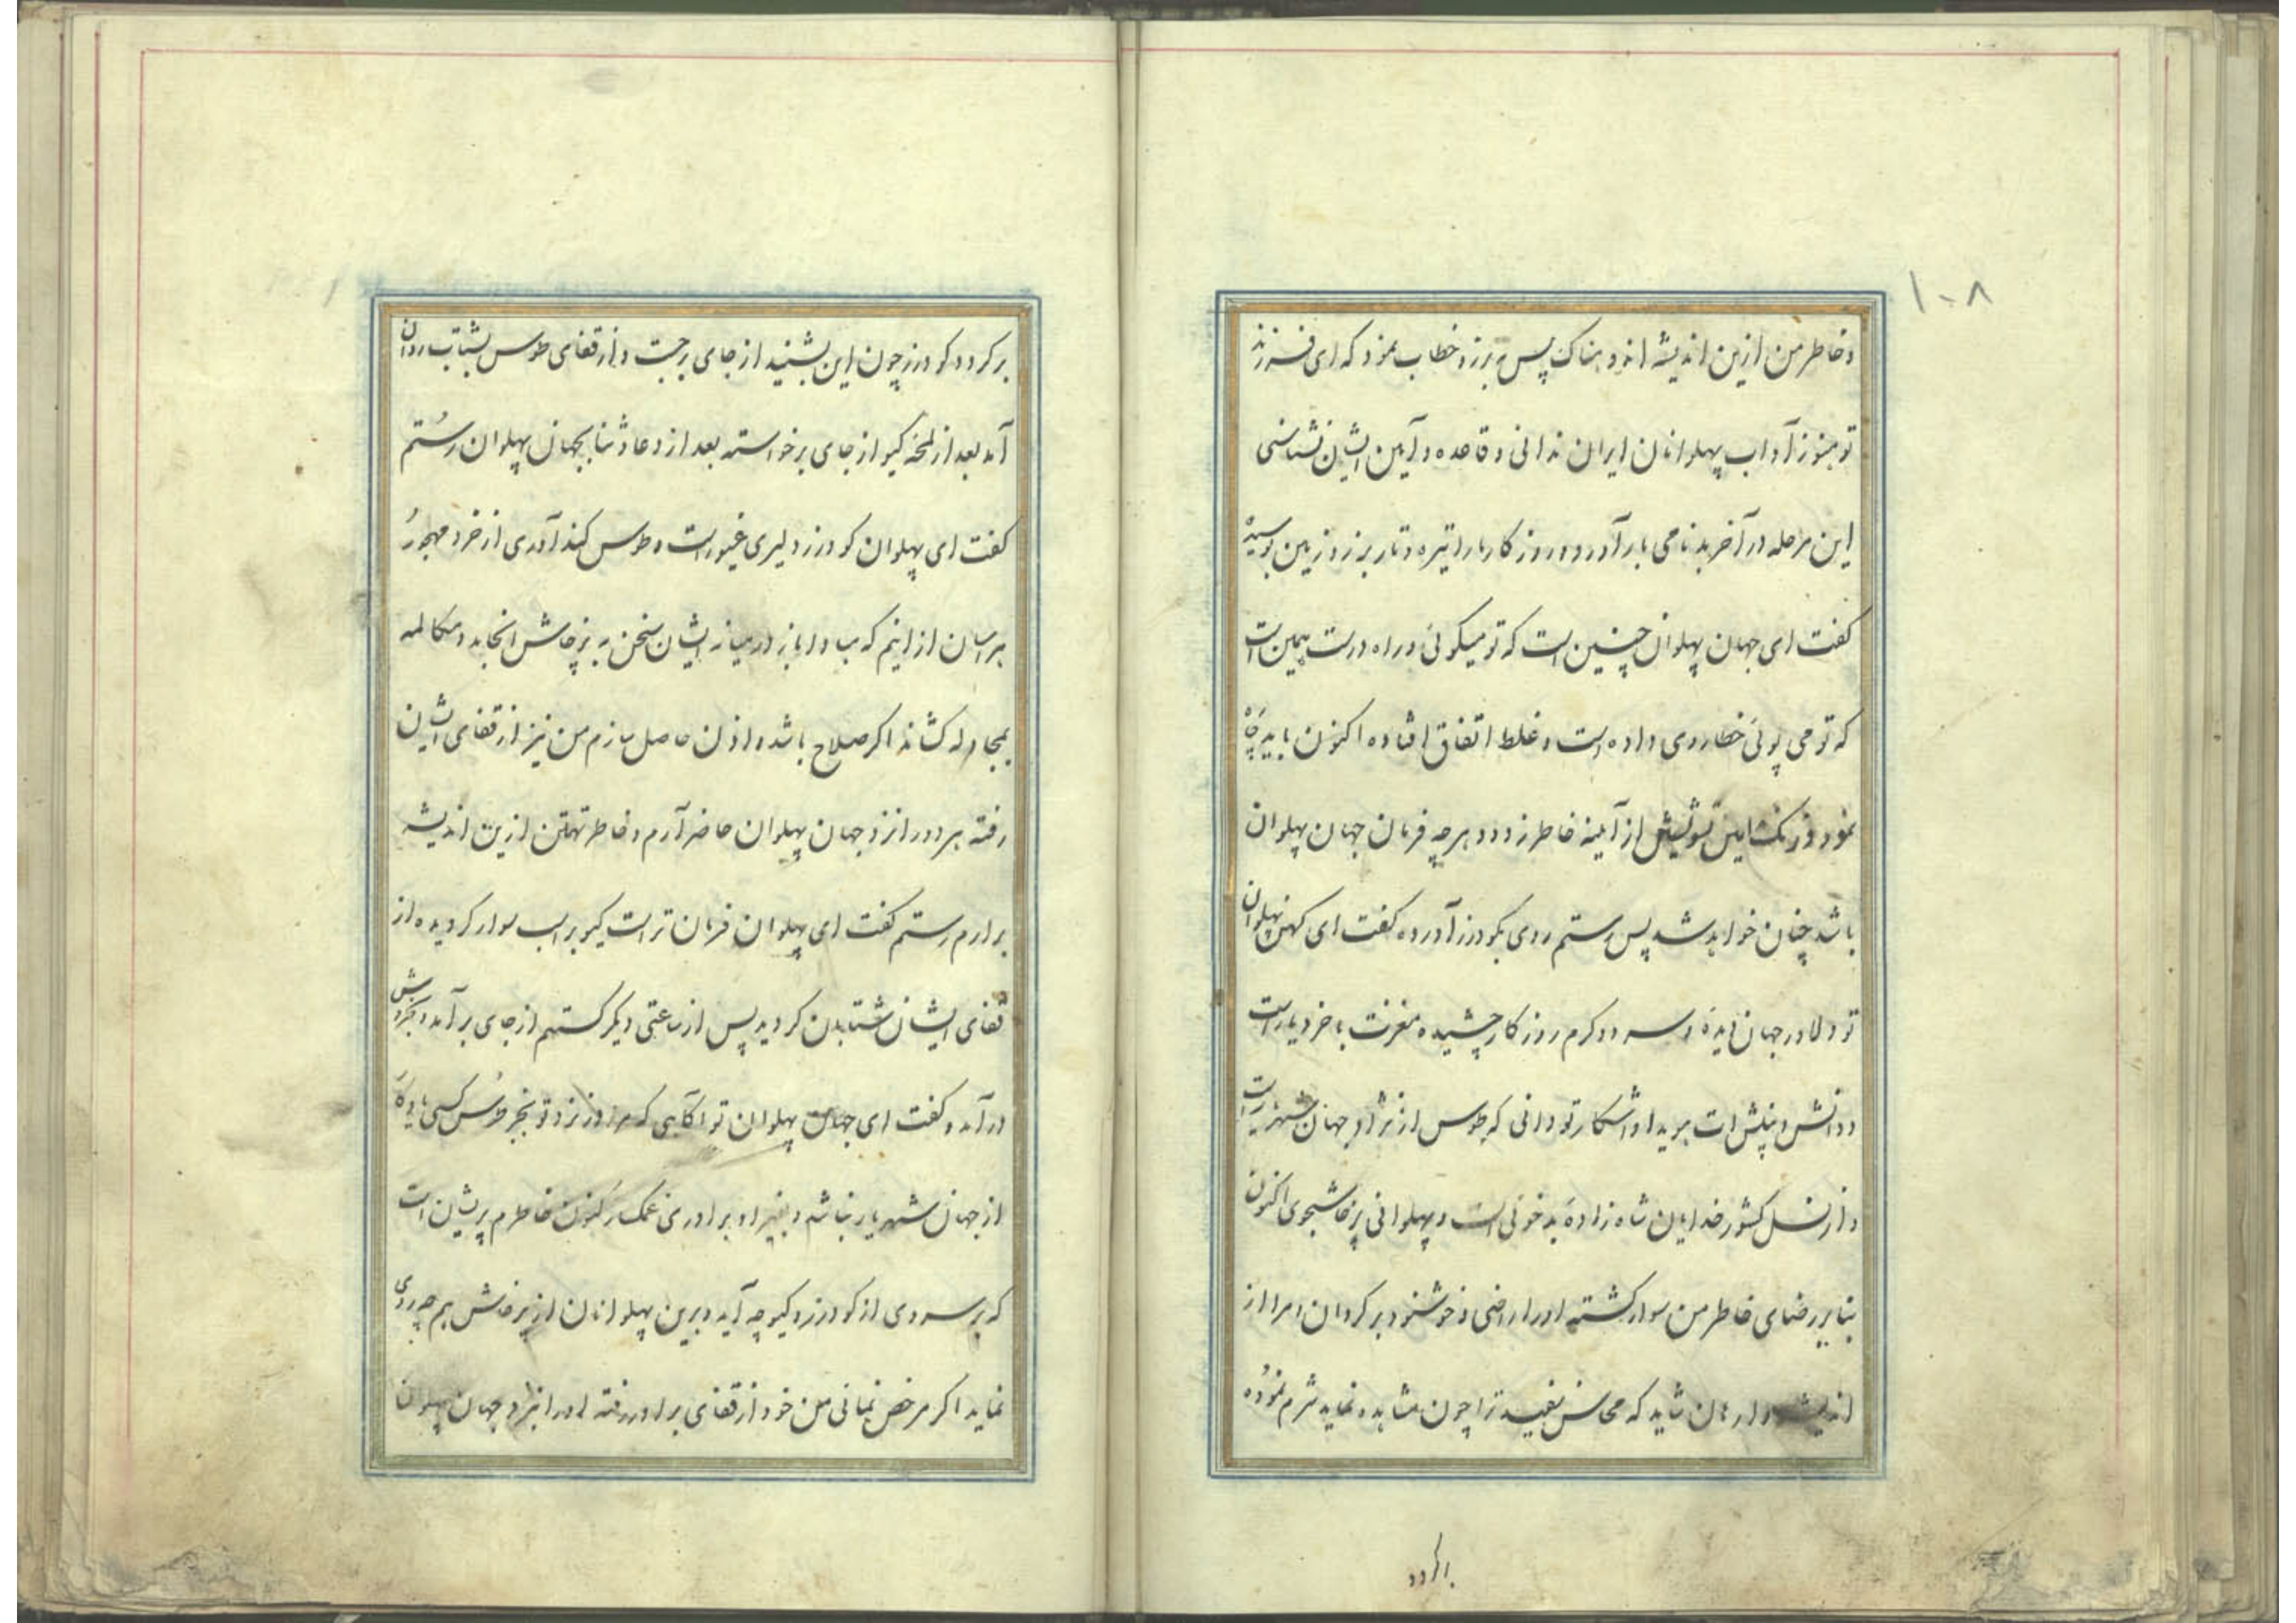 ۱۰۸
و خاطر من ازین اندیشه اندوهناک پس به برزو خطاب نمود که ای فرزند
تو هنوز آداب پهلوانان ایران ندانی و قاعده و آیین ایشان نشناسی
این مرحله در آخر بدنامی بار آورد و روزکار ما را تیره و تار برزو زمین بوسیده
کفت ای جهان پهلوان چنین است که تو میکوئی و راه درست همین است
که تو می پوئی خطا روی داده است و غلط اتفاق افتاده اکنون باید چاره
نمود و زنک این تشویش از آیینه خاطر زدود هرچه فرمان جهان پهلوان
باشد چنان خواهد شد پس رستم روی بکودرز آورده کفت ای کهن پهلوان
تو دلاور جهان دیدهٔ و سرد و کرم روزکار چشیده مغزت با خرد یار است
و دانش و بینش ات هویدا و آشکار تو دانی که طوس از نژاد جهان شهریار است
و از نسل کشور خدایان شاه زادهٔ بدخوئی است و پهلوانی پرخاشجوی اکنون
بنا بر رضای خاطر من سوار کشته او را راضی و خوشنود بر کردان و مرا از
اندیشه وارهان شاید که محاسن سفید ترا چون مشاهده نماید شرم نموده
برکردد
برکردد کودرز چون این بشنید از جای برجست و از قفای طوس بشتاب روان
آمد بعد از لمحهٔ کیو از جای برخواسته بعد از دعا و ثنا بجهان پهلوان رستم
کفت ای پهلوان کودرز دلیری غیور است و طوس کندآوری از خرد مهجور
هراسان از اینم که مبادا باز در میانه ایشان سخن به پرخاش انجامد و مکالمه
بمجادله کشاند اکر صلاح باشد و اذن حاصل سازم من نیز از قفای ایشان
رفته هر دو را نزد جهان پهلوان حاضر آرم و خاطر تهمتن ازین اندیشه
برارم رستم کفت ای پهلوان فرمان تراست کیو بر اسب سوار کردیده از
قفای ایشان شتابان کردید پس از ساعتی دیکر کستهم از جای برآمد و بخروش
درآمد و کفت ای جهان پهلوان تو آکاهی که امروز نزد تو بجز طوس کسی یادکار
از جهان شهریار نباشد و بغیر او برادری غمکسار اکنون خاطرم پریشان است
که بر سر وی از کودرز و کیو چه آید و برین پهلوانان از پرخاش هم چه روی
نماید اکر مرخص نمائی من خود از قفای برادر رفته او را بنزد جهان پهلوان